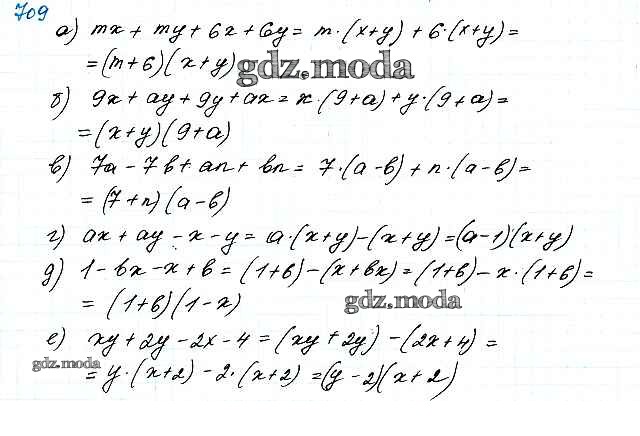 709
а) mx + my + 6x + 6y = m·(x+y) + 6·(x+y) =
= (m+6)(x+y)
gdz.moda
б) 9x + ay + 9y + ax = x·(9+a) + y·(9+a) =
= (x+y)(9+a)
в) 7a - 7b + an + bn = 7·(a-b) + n·(a-b) =
= (7+n)(a-b)
г) ax + ay - x - y = a·(x+y) - (x+y) = (a-1)(x+y)
д) 1 - bx - x + b = (1+b) - (x+bx) = (1+b) - x·(1+b) =
= (1+b)(1-x)
gdz.moda
е) xy + 2y - 2x - 4 = (xy + 2y) - (2x+4) =
gdz.moda
= y·(x+2) - 2·(x+2) = (y-2)(x+2)